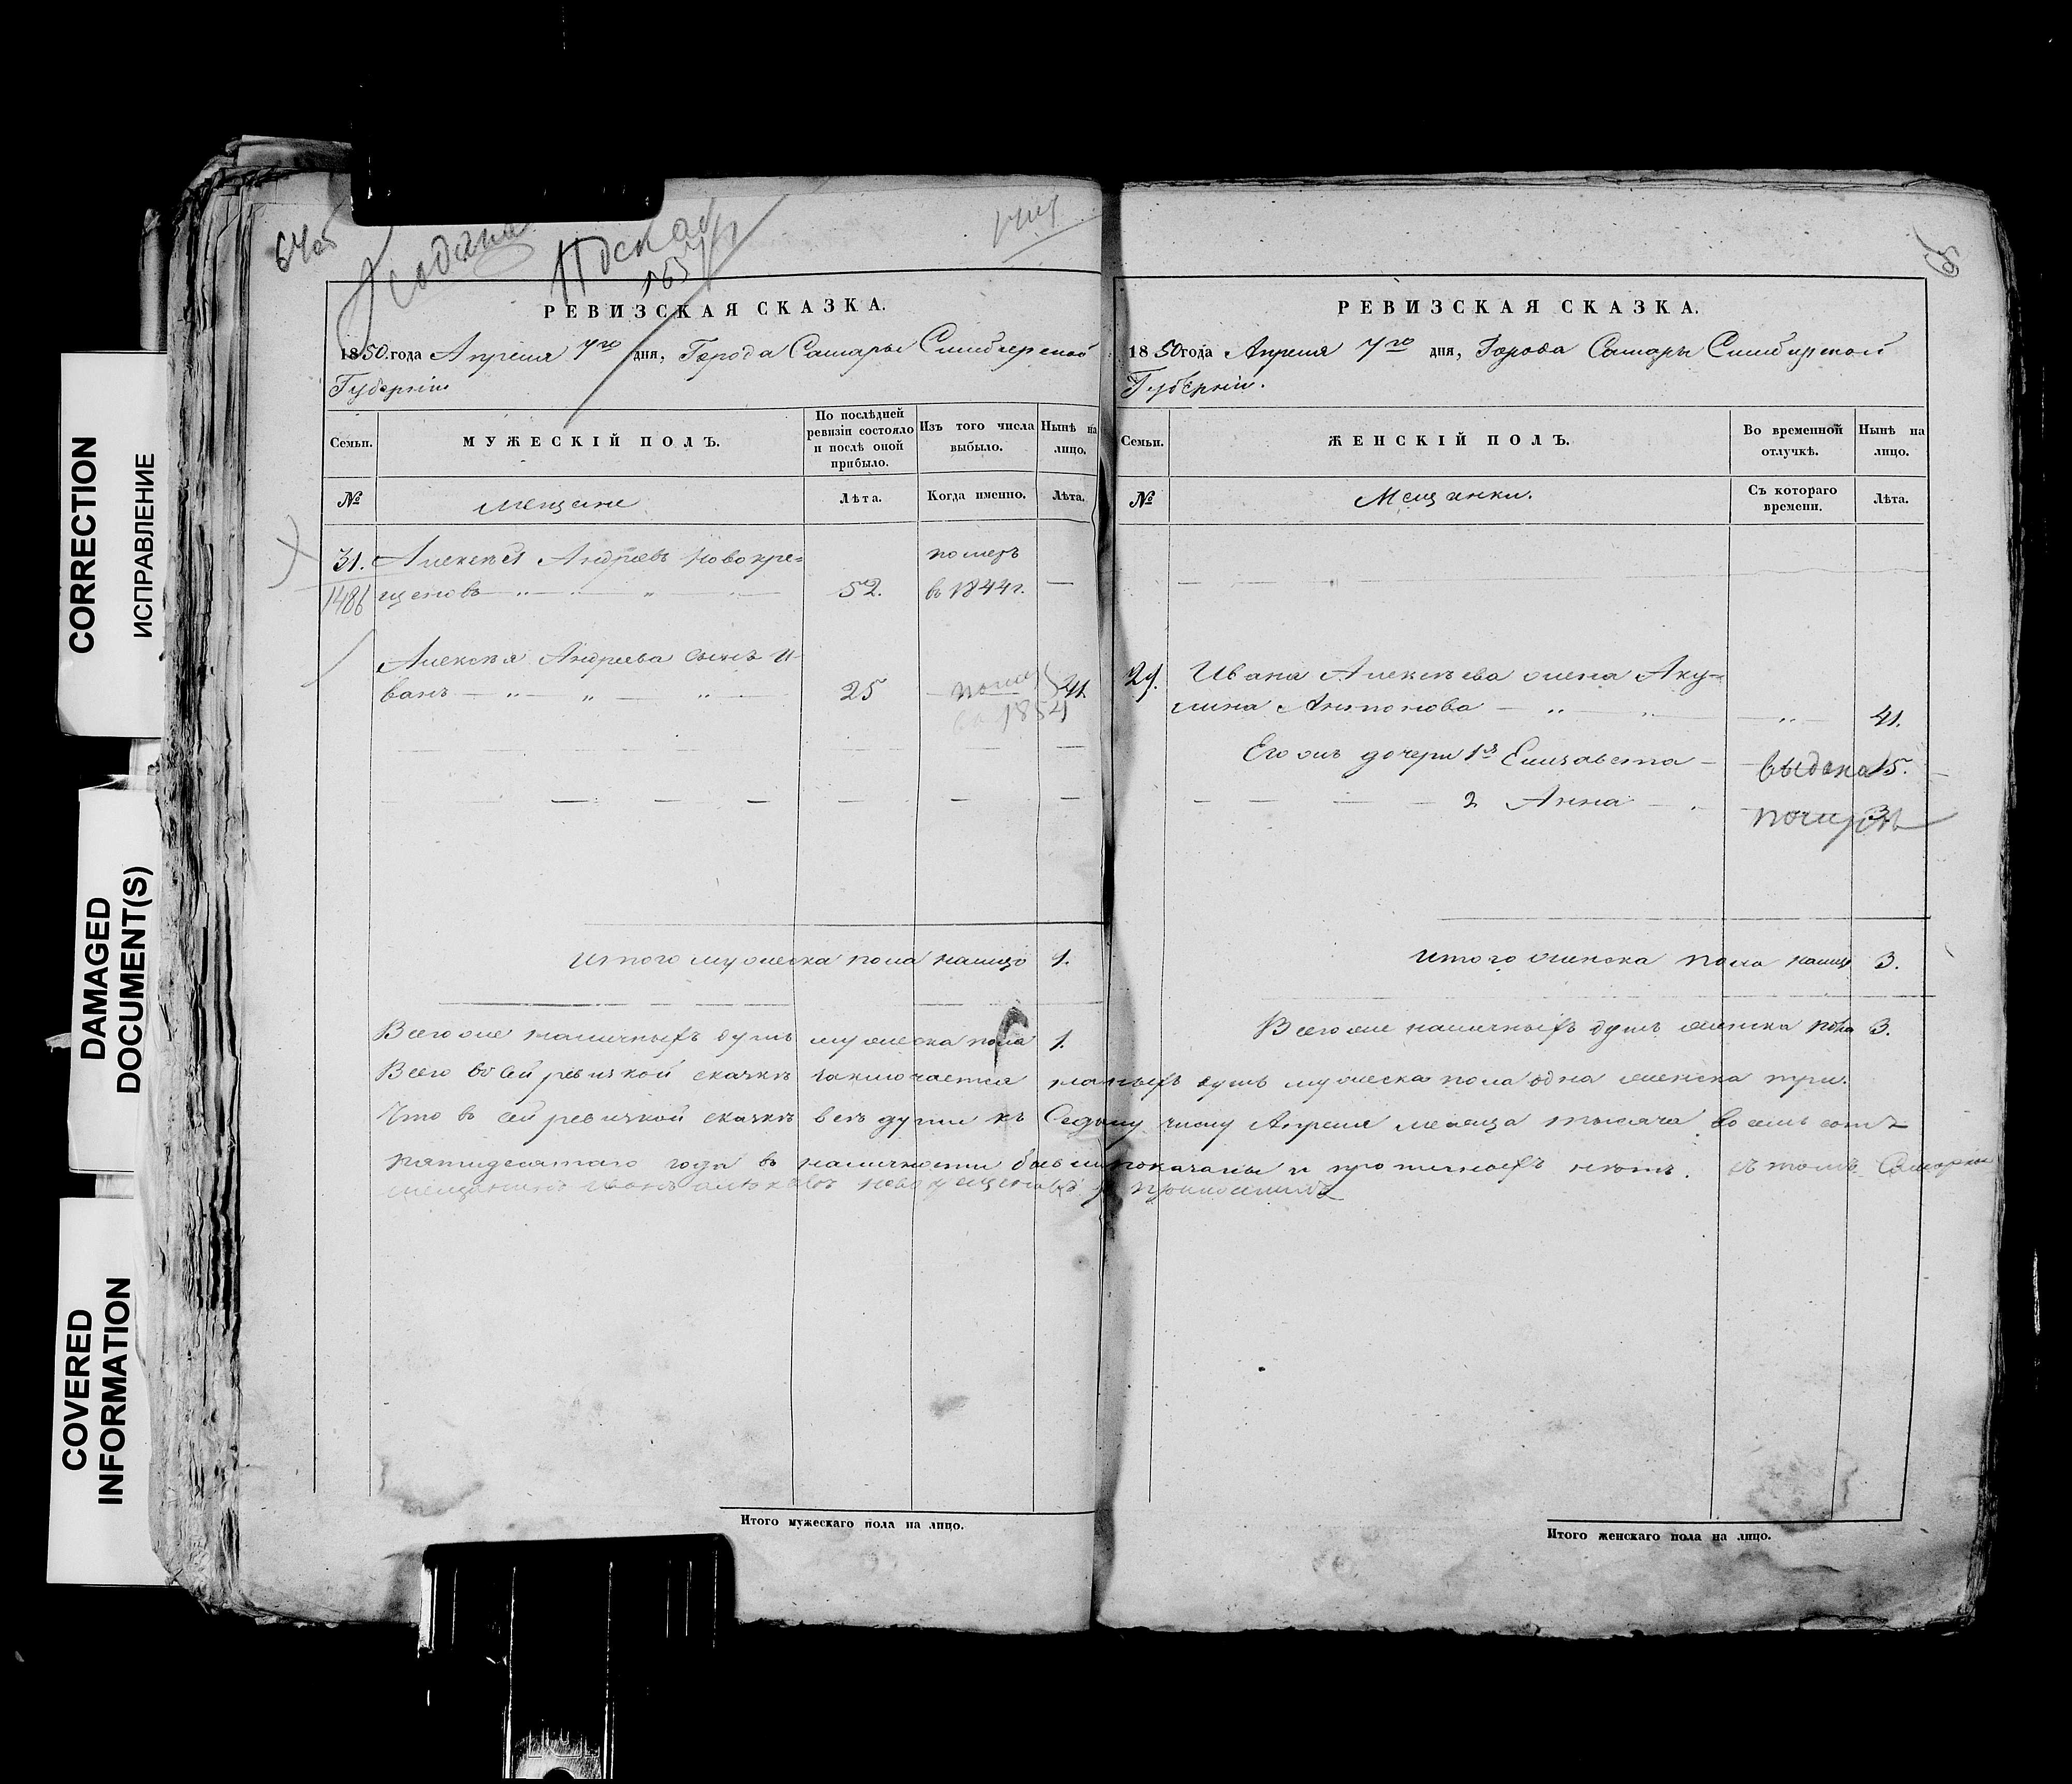 CORRECTION
ИСПРАВЛЕНИЕ
DAMAGED
DOCUMENT(S)
COVERED
INFORMATION
РЕВИЗСКАЯ СКАЗКА.
1850.года Апреля 7го дня, Города Самары Симбирской
Губернiи
Семьи.
МУЖЕСКIЙ ПОЛЪ.
По послѣдней
ревизiи состояло
и послѣ оной
прибыло.
Изъ того числа
выбыло.
Нынѣ на
лицо.
№
Мещане
Лѣта.
Когда именно.
Лѣта.
31. Алексѣй Андреевъ Новокре=
1486
щеновъ
52.
померъ
въ 1844г.
Алексѣя Андреева сынъ И-
ванъ
25
41.
1854
Итого мужеска пола налицо 1.
Всего же наличныхъ душъ мужеска пола 1.
Всего въ сей ревизкой сказкѣ заключается наличныхъ душъ мужеска пола одна женска три.
Что въ сей ревизкой сказкѣ всѣ души къ Седьмому числу Апреля месеца тысяча восемь сотъ
пятидесятаго года въ наличности бывши показаны и прописныхъ нѣтъ. въ томъ Самарской
мещанинъ Иванъ Алексѣевъ Новокрещеновъ
Итого мужескаго пола на лицо.
РЕВИЗСКАЯ СКАЗКА.
1850года Апреля 7го дня, Города Самары Симбирской
Губернiи.
Семьи.
ЖЕНСКIЙ ПОЛЪ.
Во временной
отлучкѣ.
Нынѣ на
лицо.
№
Мещанки.
Съ котораго
времени.
Лѣта.
Ивана Алексѣева жена Аку=
лина Антонова
41.
Его жъ дочери 1я Елизавета
выдана 15.
2 Анна
3.
Итого женска пола налицо 3.
Всего же наличныхъ душъ женска пола 3.
Итого женскаго пола на лицо.